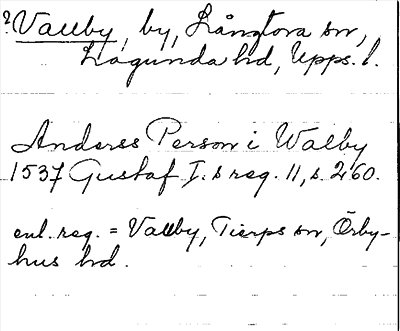 ? Vallby, by, Långtora sn,
Lagunda hd, Upps. l.
Anders Person i Walby
1537 Gustaf I:s reg. 11, s. 260.
enl. reg. = Vallby, Tierps sn, Örby-
hus hd.